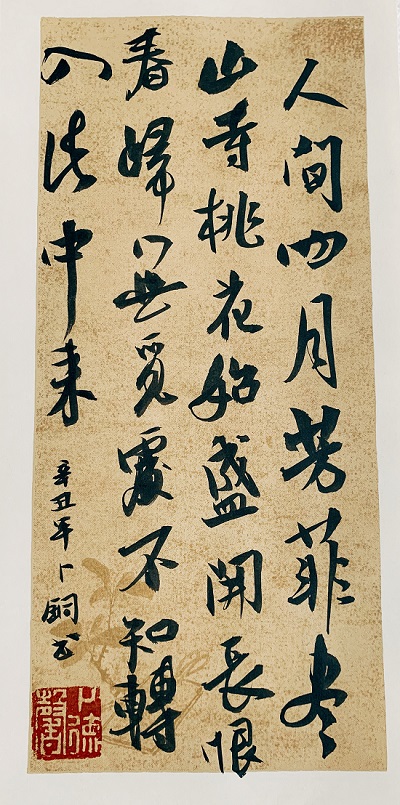 人間四月芳菲尽
山寺桃花始盛開長恨
春歸無覓處不知轉
入此中来
辛丑年卜